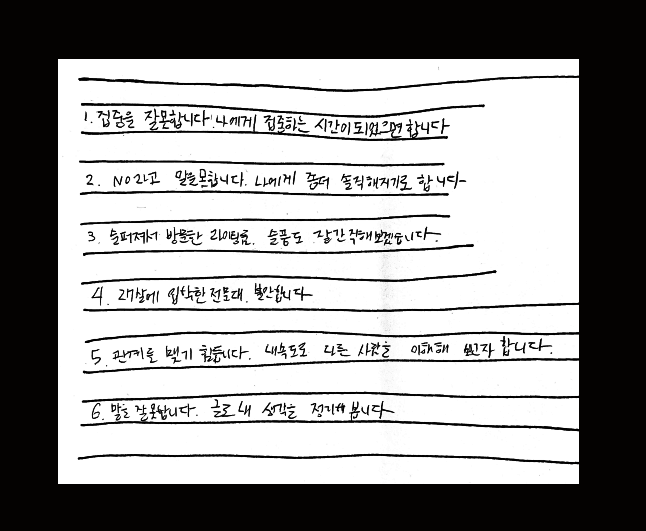 1. 집중을 잘못합니다. 나에게 집중하는 시간이 되었으면 합니다
2. NO라고 말을 못합니다. 나에게 좀더 솔직해지기로 합니다
3. 슬퍼져서 방문한 라이팅룸. 슬픔도 잘 간직해보겠습니다.
4. 27살에 입학한 전문대. 불안합니다
5. 관계를 맺기 힘듭니다. 내속도로 다른 사람을 이해해 보고자 합니다.
6. 말을 잘 못합니다. 글로 내 생각을 정리해 봅니다